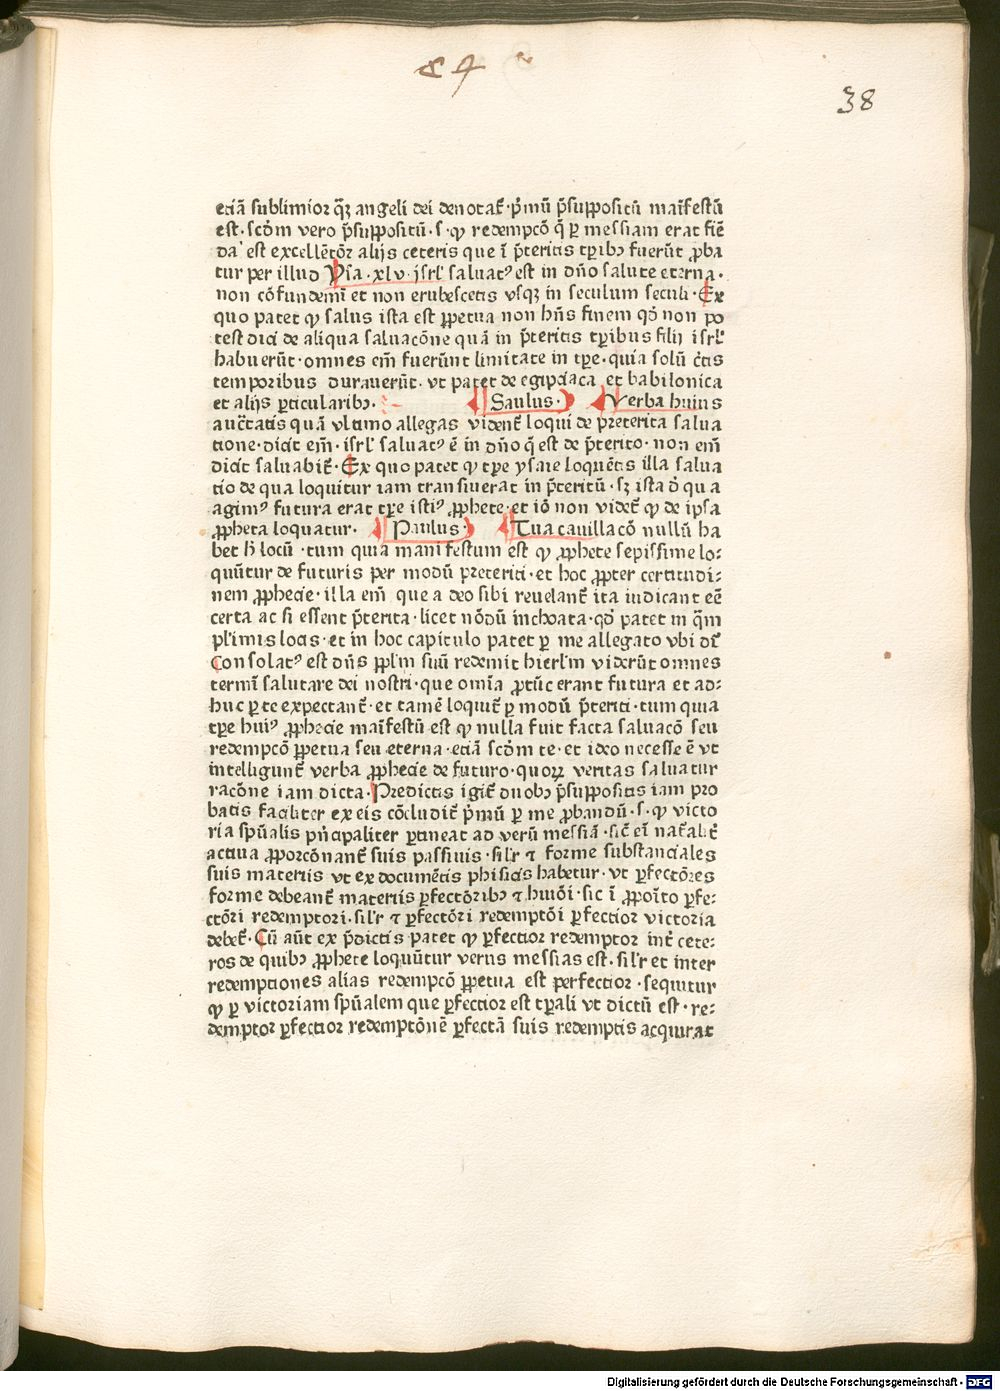 38
etiā sublimior q̄ꝫ angeli dei denotat᷑ · p̄mū p̄suppositū maīfestū
est · scḋm vero p̄suppositū · s · ꝙ redempcō q̄ ꝑ messiam erat fiē
da est excellētōr alijs ceteris que ī p̄teritis tꝑibꝫ fuerūt ꝓba
tur per illud Ysa · xlv · isrl' saluatꝰ est in dn̄o salute eterna ·
non cōfundemī et non erubescetis vsqꝫ in seculum seculi · Ex
quo patet ꝙ salus ista est ꝑpetua non hn̄s finem qḋ non po
test dici de aliqua saluacōne quā in p̄teritis tꝑibus filij isrl'
habuerūt · omnes em̄ fuerūnt limitate in tꝑe · quia solū c̄tis
temporibus durauerūt · vt patet de egipciaca et babilonica
et alijs ꝑticularibꝫ · Saulus · Verba huius
auc̄tatis quā vltimo allegas vident᷑ loqui de preterita salua
tione · dicit em̄ · isrl' saluatꝰ ē in dn̄o q̄ est de p̄terito · non em̄
dicit saluabit᷑ · Ex quo patet ꝙ tꝑe ysaie loquētis illa salua
tio de qua loquitur iam transiuerat in p̄teritū · sꝫ ista d̄ qua
agimꝰ futura erat tꝑe istiꝰ ꝓphete · et iō non videt᷑ ꝙ de ipsa
ꝓpheta loquatur · Paulus · Tua cauillacō nullū ha
bet h̄ locū · tum quia manifestum est ꝙ ꝓphete sepissime lo⸗
quūtur de futuris per modū preteriti · et hoc ꝓpter certitudi⸗
nem ꝓphecie · illa em̄ que a deo sibi reuelant᷑ ita iudicant eē
certa ac si essent p̄terita · licet nōdū inchoata · qḋ patet in q̄m
pl'imis locis · et in hoc capitulo patet ꝑ me allegato vbi dī
Consolatꝰ est dn̄s ꝑpl'm suū redemit hierl'm viderūt omnes
termī salutare dei nostri · que omīa ꝓtūc erant futura et ad⸗
huc ꝑ te expectant᷑ · et tamē loquit᷑ ꝑ modū p̄teriti · tum quia
tꝑe huiꝰ ꝓphecie maīfestū est ꝙ nulla fuit facta saluacō seu
redempcō ꝑpetua seu eterna · etiā scḋm te · et ideo necesse ē vt
intelligunt᷑ verba ꝓphecie de futuro · quoꝝ veritas saluatur
racōne iam dicta · Predictis igit᷑ duobꝫ p̄suppositis iam pro
batis faciliter ex eis cōcludit᷑ p̄mū ꝑ me ꝓbandū · s · ꝙ victo
ria spūalis pn̄cipaliter ꝑtineat ad verū messiā · sic̄ eī nat᷑alit᷑
actiua ꝓporcōnant᷑ suis passiuis · sil'r ⁊ forme substanciales
suis materiis vt ex documētis phisicis habetur · vt ꝑfectōres
forme debeant᷑ materiis ꝑfectōribꝫ ⁊ huiōi · sic ī ꝓpoīto ꝑfe⸗
ctōri redemptori · sil'r ⁊ ꝑfectōri redemptōi ꝑfectior victoria
debet᷑ · Cū aūt ex p̄dictis patet ꝙ ꝑfectior redemptor int᷑ cete⸗
ros de quibꝫ ꝓphete loquūtur verus messias est · sil'r et inter
redemptiones alias redempcō ꝑpetua est perfectior · sequitur
ꝙ ꝑ victoriam spūalem que ꝑfectior est tꝑali vt dictū est · re⸗
demptor ꝑfectior redemptōnē ꝑfectā suis redemptis acquirat
Digitalisierung gefördert durch die Deutsche Forschungsgemeinschaft · DFG